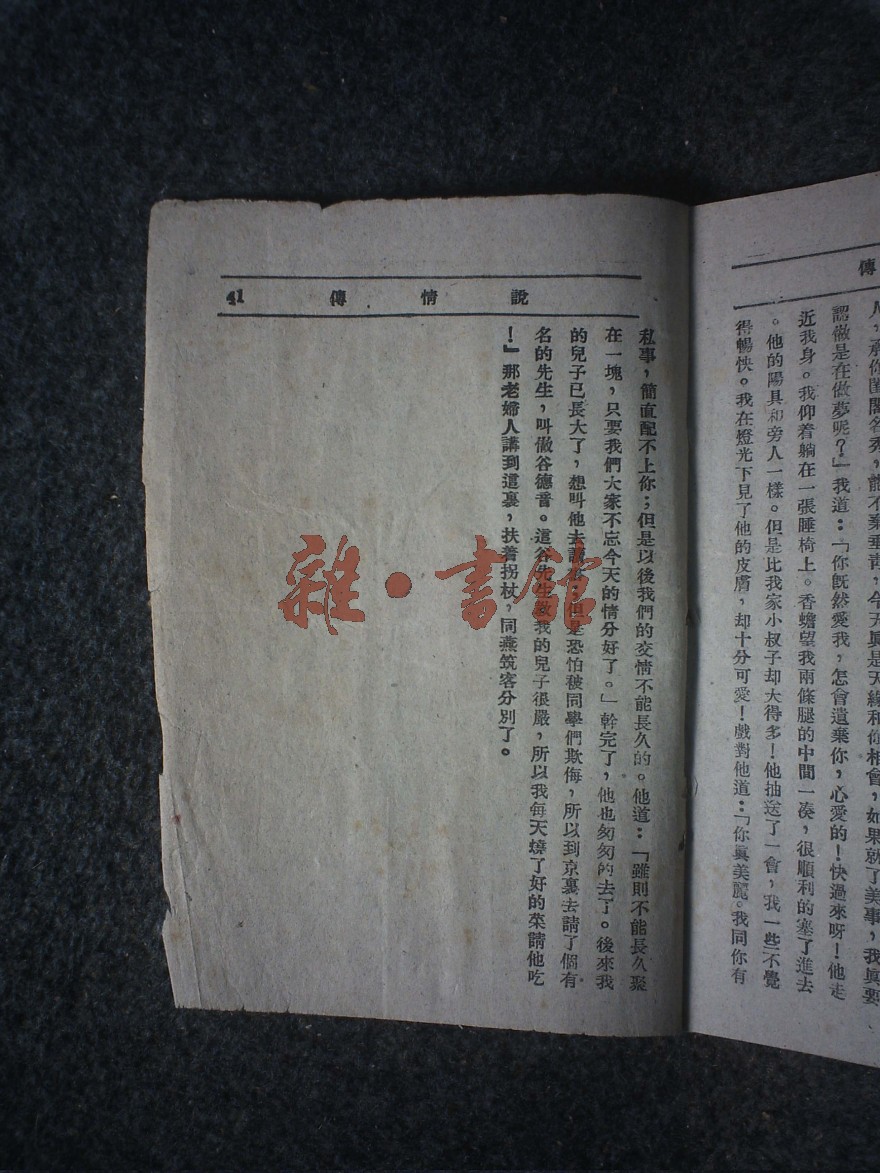 傳
人，承你閨閣名秀，能不棄垂靑，今天眞是天緣和你相會，如果就了美事，我眞要
認做是在做夢呢？」我道：「你旣然愛我，怎會遺棄你，心愛的！快過來呀！他走
近我身。我仰着躺在一張睡椅上。香蟾望我兩條腿的中間一凑，很順利的塞了進去
。他的陽具和旁人一樣。但是比我家小叔子却大得多！他抽送了一會，我一些不覺
得暢快。我在燈光下見了他的皮膚，却十分可愛！戲對他道：「你眞美麗。我同你有
說情傳
41
私事，簡直配不上你；但是以後我們的交情不能長久的。他道：「雖則不能長久聚
在一塊，只要我們大家不忘今天的情分好了。」幹完了，他也匆匆的去了。後來我
的兒子已長大了，想叫他去讀書；但是恐怕被同學們欺侮，所以到京裏去請了個有
名的先生，叫做谷德音。這谷先生敎我的兒子很嚴，所以我每天燒了好的菜請他吃
！』那老婦人講到這裏，扶着拐杖，同燕筑客分別了。
雜·書館